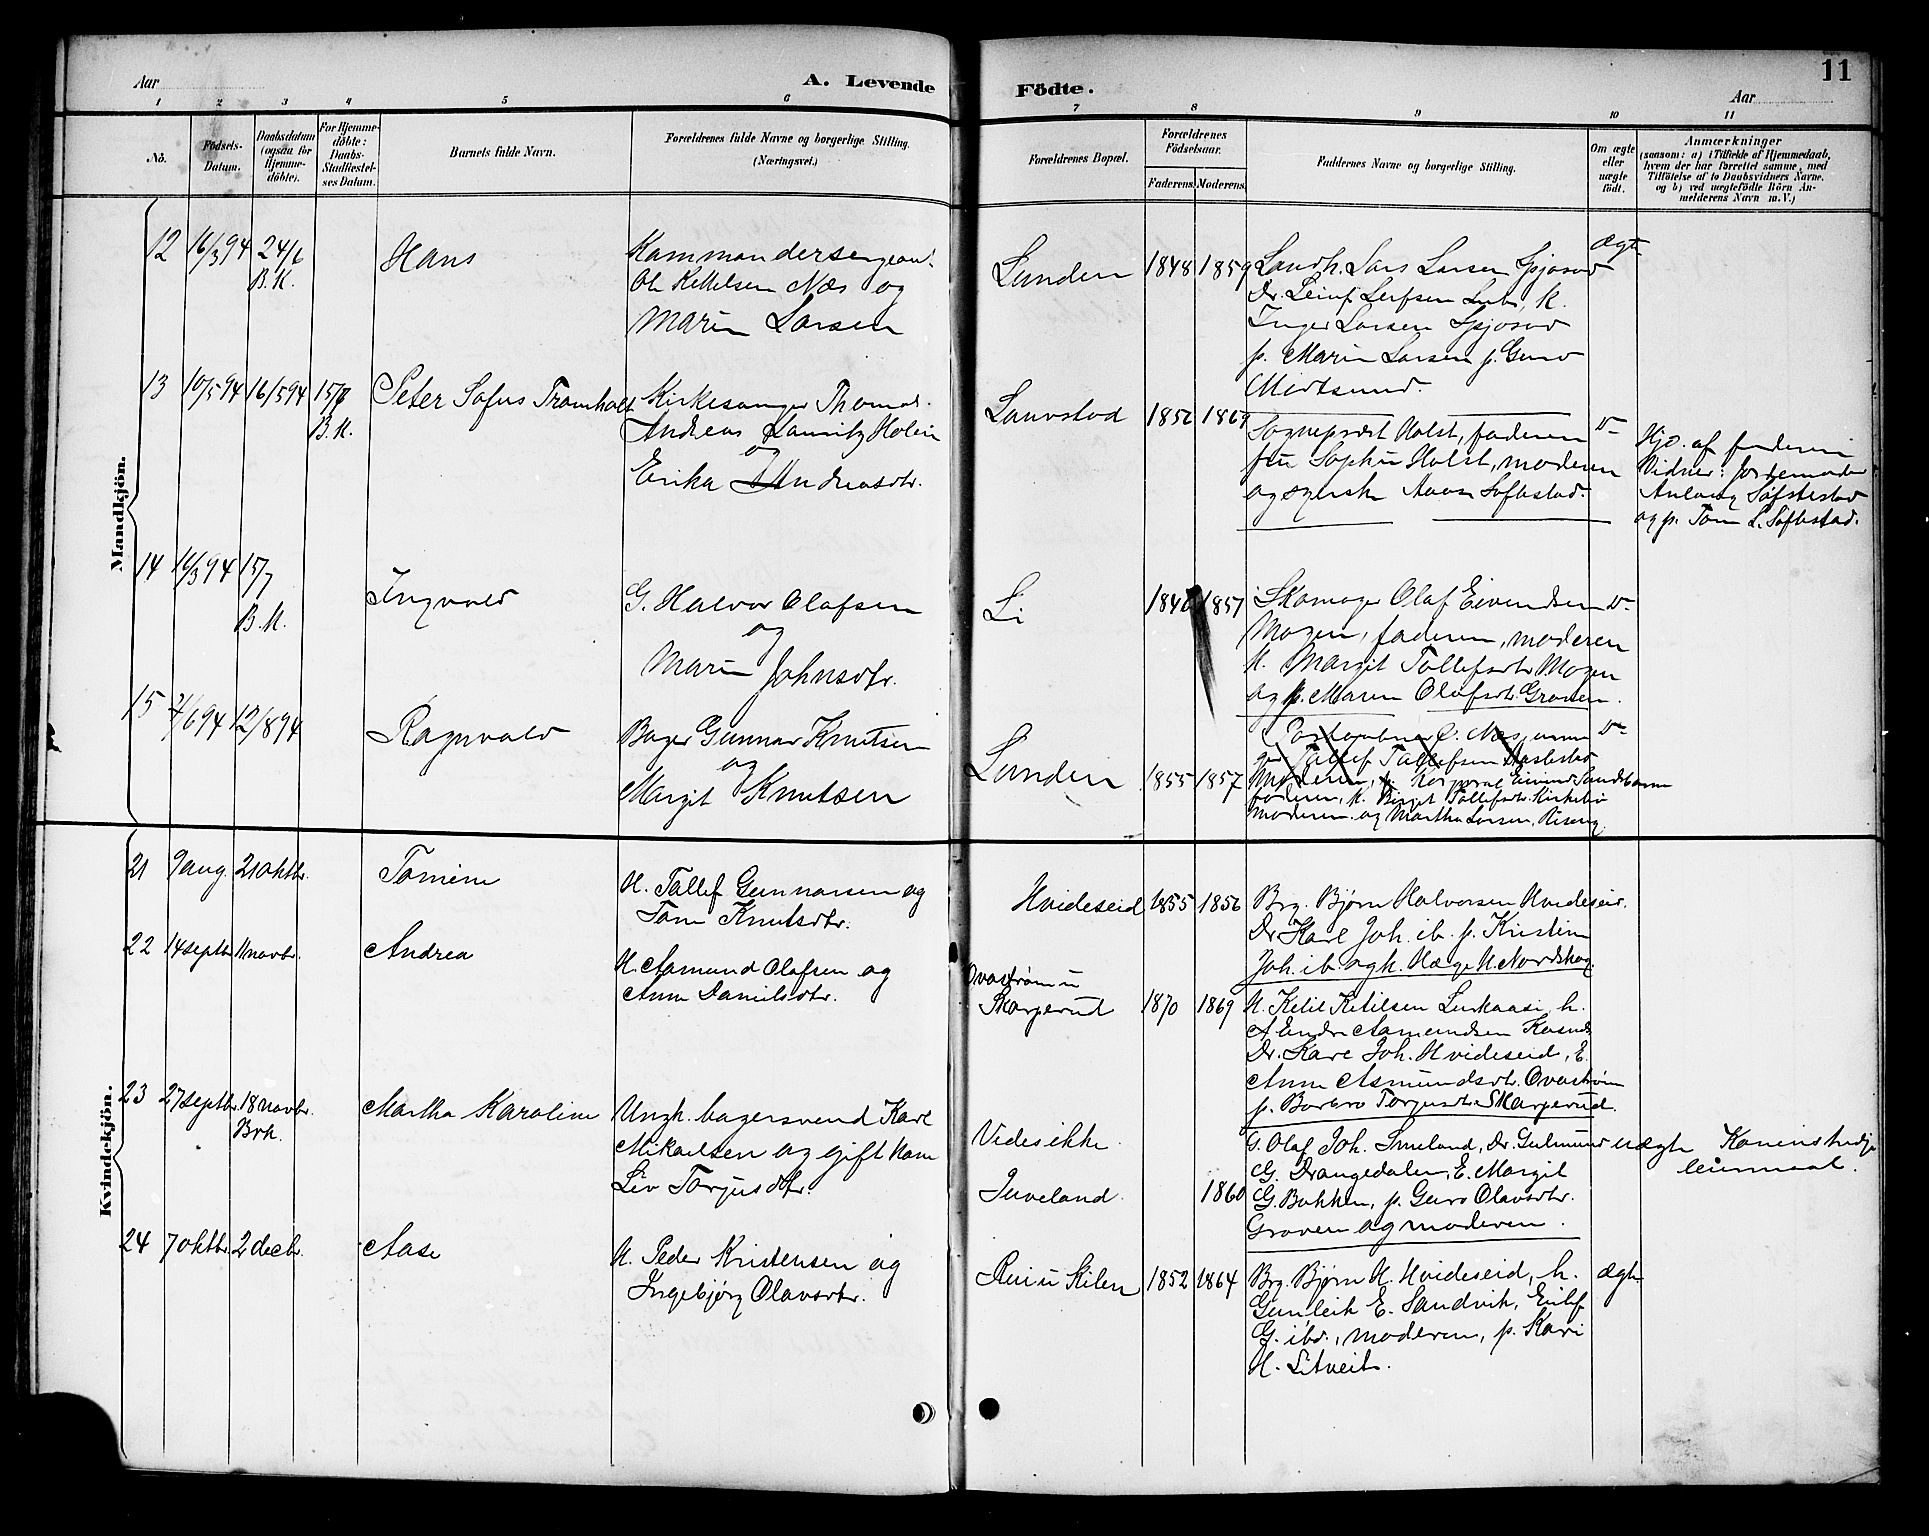 Aar
A. Levende
Födte.
11
Aar
1 2 3 4 5 6 7 8 9 10 11
No.
Födsels-
Datum.
Daabsdatum
(ogsaa for
Hjemme-
döbte).
For Hjemme-
döbte:
Daabs-
Stadfæstel-
ses Datum.
Barnets fulde Navn.
Forældrenes fulde Navne og borgerlige Stilling.
(Næringsvei.)
Forældrenes Bopæl.
Forældrenes
Födselsaar.
Faderens. Moderens.
Faddernes Navne og borgerlige Stilling.
Om ægte
eller
uægte
født.
Anmærkninger
(saasom: a) i Tilfælde af Hjemmedaab,
hvem der har forrettet samme, med
Tilföielse af to Daabsvidners Navne.
og b) ved uægtefödte Börn An-
melderens Navn m. V.)
Mandkjön.
12 16/3 94 24/6
B.K.
Hans
Kommandersergeant
Ole Kettelsen Næs og
Marie Larsen
Lunden 1848 1859
Landh. Lars Larsen
Dr. Leif Leifsen K.
Inger Larsen
p. Marie Larsen p. Guro
Midtsund.
ægte
13 10/5 94 16/5 94 15/7
B.K.
Peter Sofus Tromholt
Kirkesanger Thomas
Andreas Lauritz Holm
og
Erika Andreasdtr.
Lauvstad 1856 1869
Sogneprest Holst, faderen
fru Sophie Holst, moderen
og Aase Søftestad.
Hjd. af faderen
Vidner: Jordemoder
Anlaug Søftestad
og p. Tone L. Søftestad.
14 16/3 94 15/7
B.K.
Ingvald
G. Halvor Olafsen
og
Marie Johnsdtr.
Li 1857
Skomager Olaf Eivendsen
Mogen, faderen, moderen
K. Margit Tollefsdtr. Mogen
og p. Maren Olafsdtr. Groven.
15 12/8 94
Ragnvald
Bager Gunnar Knutsen
og
Margit Knutsen
Lunden 1855 1857
Tallef Tallefsen
Moderen, Korporal Eivind Sandsbraaten
faderen, K. Birgit Tollefsdtr. Kirkebø
moderen og Martha Larsen, Riseng
Kvindekjön.
21 9 aug. 21 oktbr.
Tomine
H. Tallef Gunnarsen og
Tone Knutsdtr.
Hvideseid 1855 1856
Brg. Bjørn Halvorsen Hvideseid.
Dr. Karl Joh. ib. p. Kristine
Joh. ib. og k. Hæge H. Nordskog.
22 14 septbr. 11 novbr.
Andrea
H. Aamund Olafsen og
Anne Danielsdtr.
Ovastrøm u
Skarperud 1870 1869
H. Ketil Ketilsen Lurkaasi h.
A Endre Aamundsen
Dr. Karl Joh. Hvideseid, E.
Anne Asmundsdtr. Ovastrøm
p. Borbro Torjusdtr. Skarperud.
23 27 septbr. 18 novbr.
Brk.
Martha Karoline
Ungk. bagersvend Karl
Mikaelsen og gift kone
Liv Torjusdtr.
Vides ikke.
Juveland. 1860
G. Olaf Joh. Smeland, Dr. Gulmund
G. Drangedalen, E. Margit
G. Bakken, p. Guro Olavsdtr.
Groven og moderen.
uægte
leiermaal.
24 7 oktbr. 2 decbr.
Aase
H. Peder Kristensen og
Ingebjørg Olavsdtr.
Rui u Kilen 1852 1864
Brg. Bjørn H. Hvideseid, h.
Gunleik E. Sandvik, Eilef
G. ibd., moderen, p. Kari
H. Litveit.
ægte